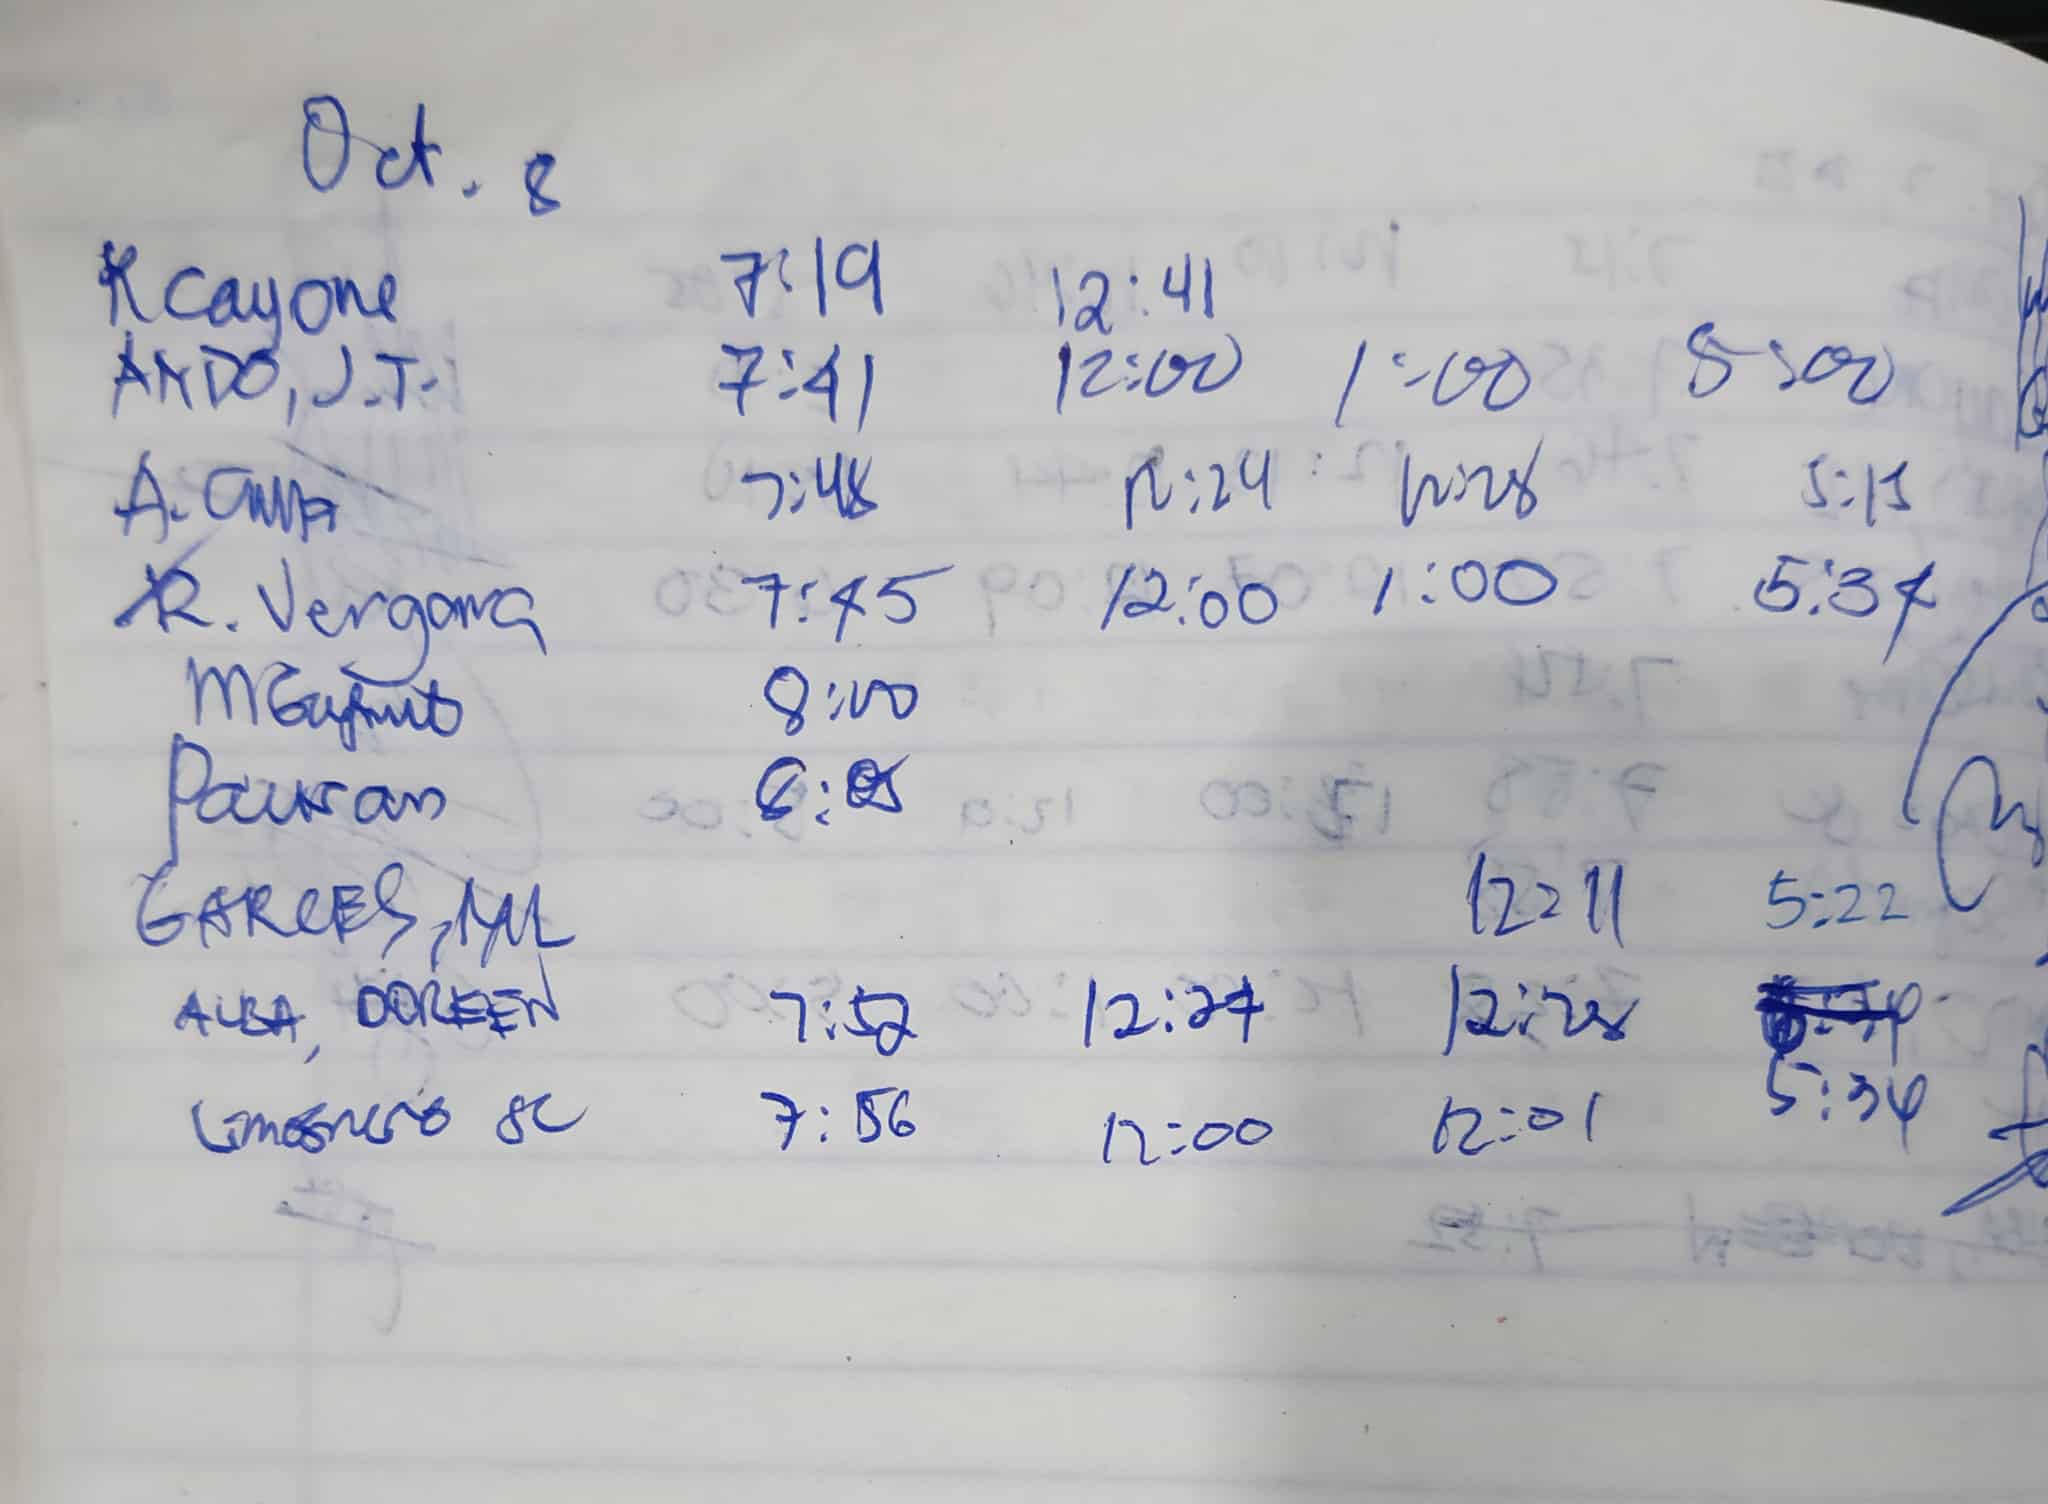 Oct. 8
K Cayone 7:19 12:41
ANDO, J.T. 7:41 12:00 1:00 5:00
A. 7:48 12:24 12:28 5:15
R. Vergara 7:45 12:00 1:00 5:34
8:00
8:05
GARCES, ML 12:11 5:22
ALBA, DOREEN 7:52 12:27 12:28
Limosnero SC 7:56 12:00 12:01 5:34